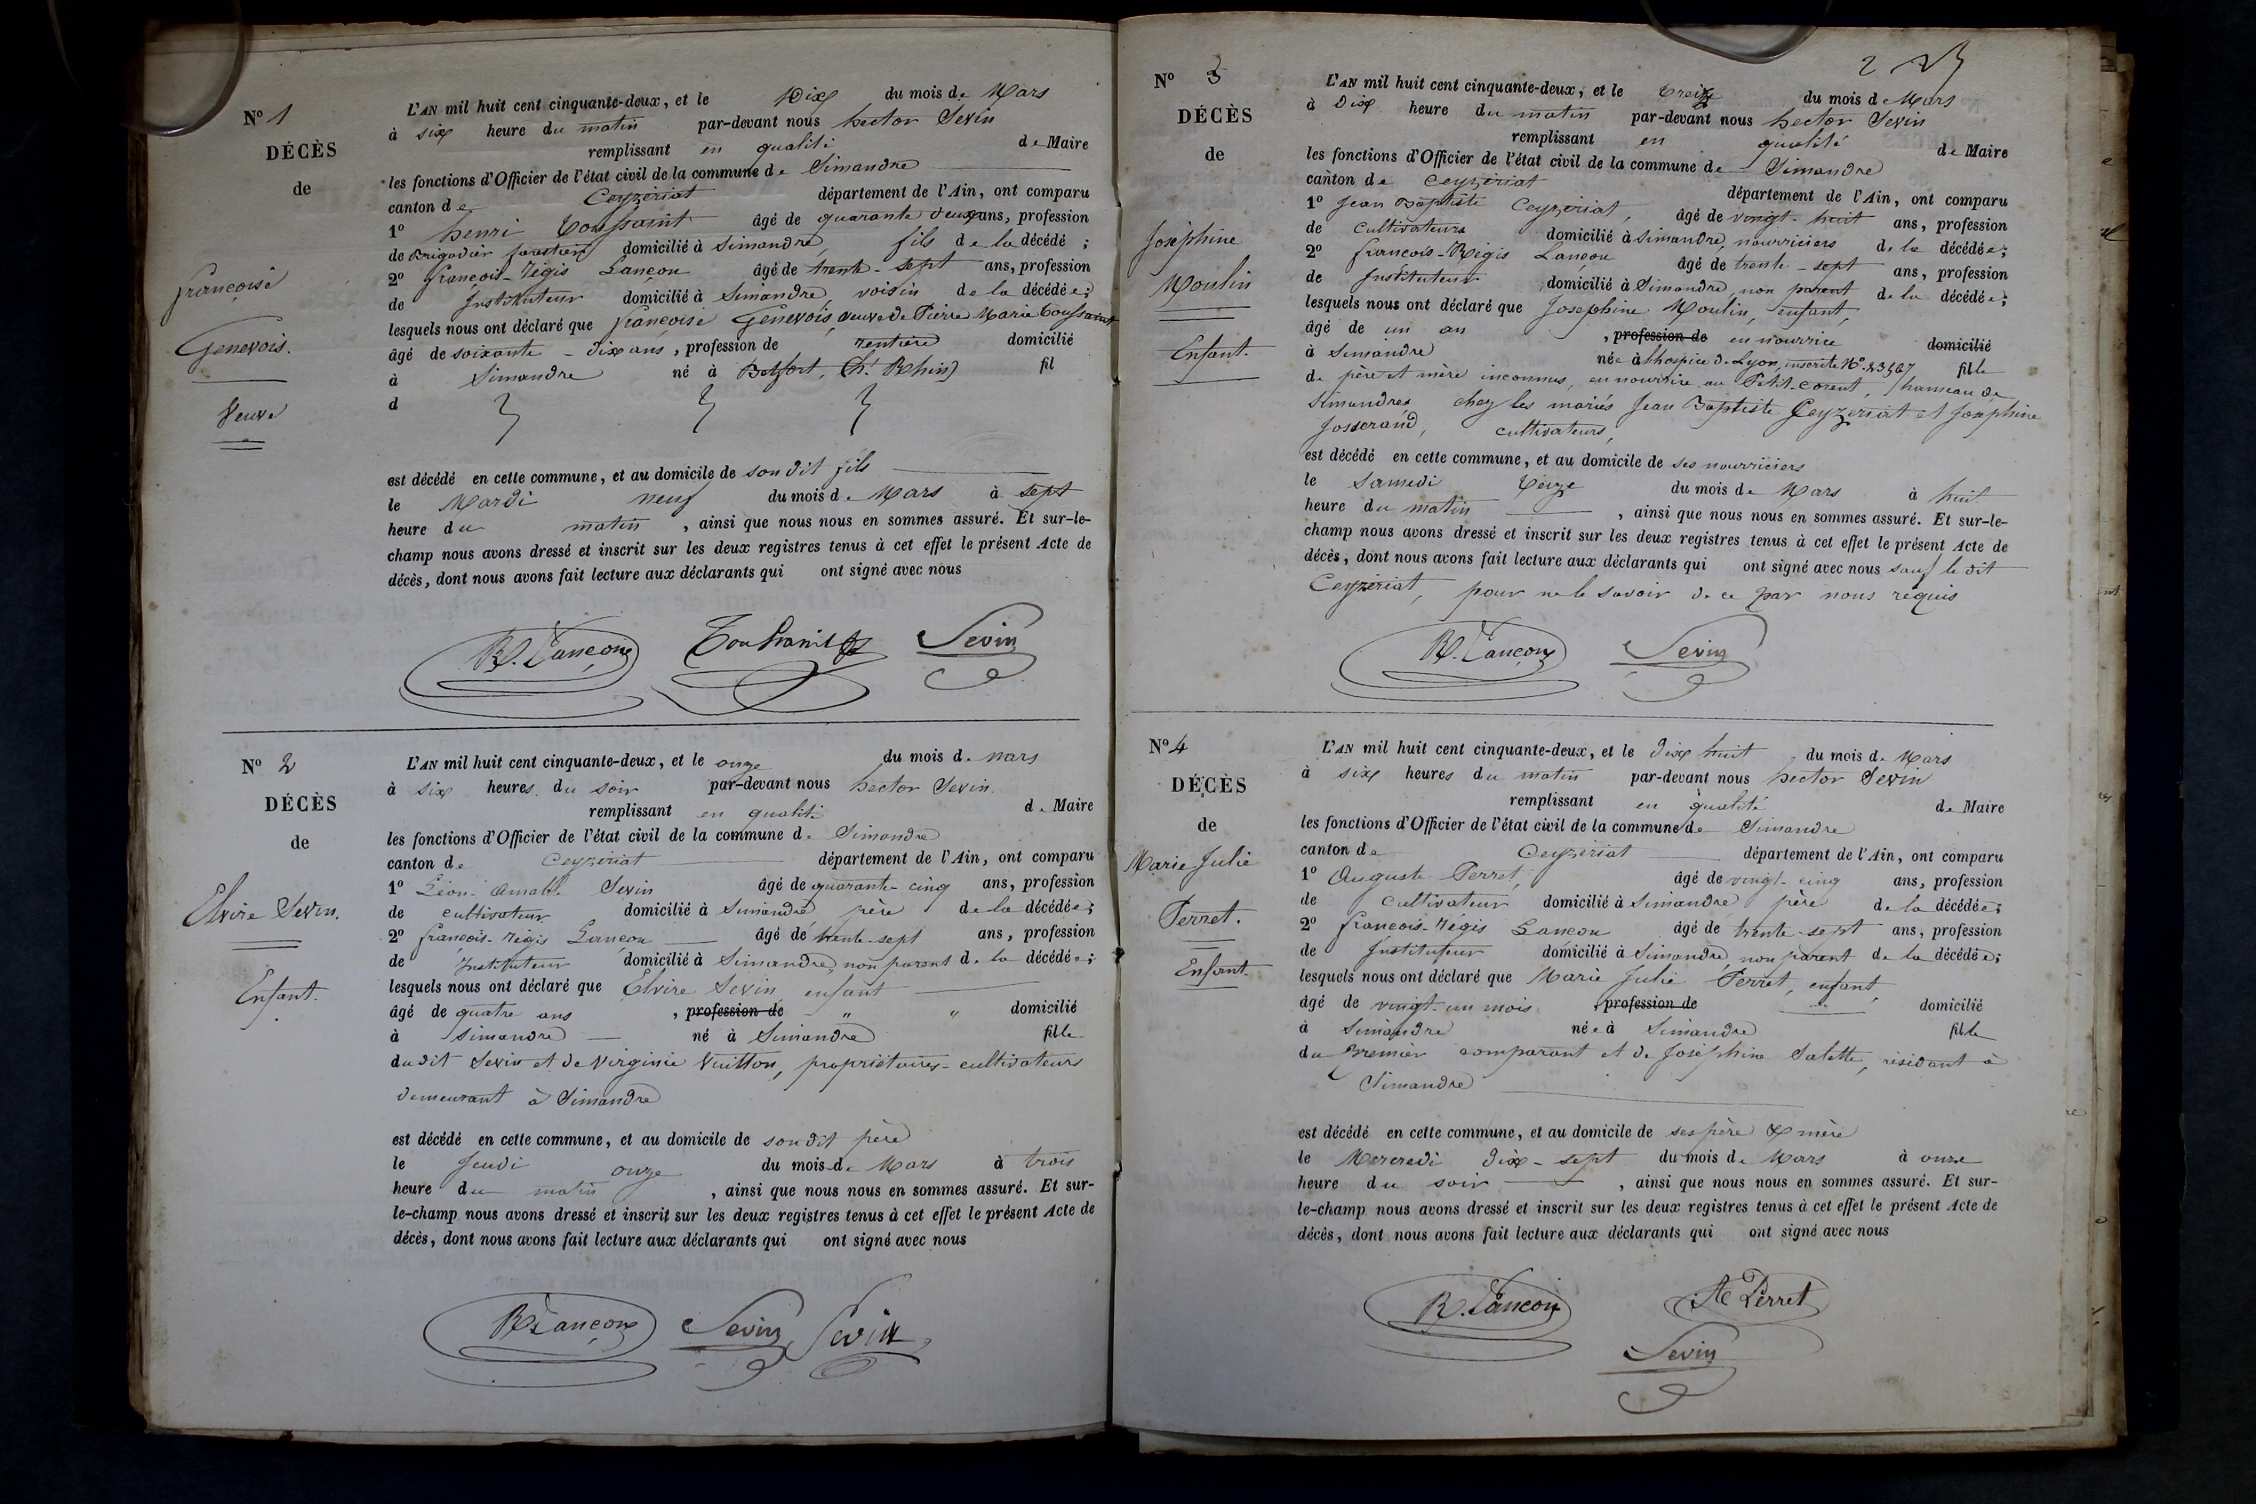 N° 1
DÉCÈS
de
françoise
Genevois.
Veuve
L'AN mil huit cent cinquante-deux, et le Dix du mois de Mars
à six heure du matin par-devant nous hector Sevin
remplissant en qualité de Maire
les fonctions d'Officier de l'état civil de la commune de Simandre
canton de Ceyzeriat département de l'Ain, ont comparu
1° henri Toussaint âgé de quarante deux ans, profession
de Brigadier forestier domicilié à Simandre, fils de la décédé ;
2° françois-Régis Lançon âgé de trente-sept ans, profession
de Instituteur domicilié à Simandre, voisin de la décédée;
lesquels nous ont déclaré que françoise Genevois, veuve de Pierre Marie Toussaint
âgé de soixante-dix ans, profession de rentière domicilié
à Simandre né à Belfort, (ht Rhin) fil
d
est décédé en cette commune, et au domicile de son dit fils
le Mardi neuf du mois de Mars à sept
heure du matin, ainsi que nous nous en sommes assuré. Et sur-le-
champ nous avons dressé et inscrit sur les deux registres tenus à cet effet le présent Acte de
décès, dont nous avons fait lecture aux déclarants qui ont signé avec nous
R. Lançon Toussaint Sevin
N° 2
DÉCÈS
de
Elvire Sevin.
Enfant.
L'AN mil huit cent cinquante-deux, et le onze du mois de mars
à six heures du soir par-devant nous hector Sevin
remplissant en qualité de Maire
les fonctions d'Officier de l'état civil de la commune de Simandre
canton de Ceyzeriat département de l'Ain, ont comparu
1° Léon Amable Sevin âgé de quarante-cinq ans, profession
de cultivateur domicilié à Simandre père de la décédée;
2° françois-Régis Lançon âgé de trente-sept ans, profession
de Instituteur domicilié à Simandre, non parent de la décédée;
lesquels nous ont déclaré que Elvire Sevin enfant
âgé de quatre ans, profession de " " domicilié
à Simandre né à Simandre fille
du dit Sevin et de Virginie Vuitton, propriétaires-cultivateurs
demeurant à Simandre
est décédé en cette commune, et au domicile de son dit père
le Jeudi onze du mois de Mars à trois
heure du matin, ainsi que nous nous en sommes assuré. Et sur-
le-champ nous avons dressé et inscrit sur les deux registres tenus à cet effet le présent Acte de
décès, dont nous avons fait lecture aux déclarants qui ont signé avec nous
R Lançon Sevin Sevin
2
N° 3
DÉCÈS
de
Joséphine
Moulin
Enfant.
L'AN mil huit cent cinquante-deux, et le treize du mois de Mars
à Dix heure du matin par-devant nous hector Sevin
remplissant en qualité de Maire
les fonctions d'Officier de l'état civil de la commune de Simandre
canton de Ceyzeriat département de l'Ain, ont comparu
1° Jean Baptiste Ceyzeriat, âgé de vingt-huit ans, profession
de cultivateurs domicilié à Simandre, nourriciers de la décédée;
2° françois-Régis Lançon âgé de trente-sept ans, profession
de Instituteur domicilié à Simandre, non parent de la décédée;
lesquels nous ont déclaré que Josephine Moulin, enfant,
âgé de un an, profession de en nourrice domicilié
à Simandre née à l'hospice de Lyon, inscrite N° fille
de père et mère inconnus, en nourrice au Petit-Corent, hameau de
Simandre chez les mariés Jean Baptiste Ceyzeriat et Josephine
Josserand, cultivateurs,
est décédé en cette commune, et au domicile de ses nourriciers
le Samedi treize du mois de Mars à huit
heure du matin, ainsi que nous nous en sommes assuré. Et sur-le-
champ nous avons dressé et inscrit sur les deux registres tenus à cet effet le présent Acte de
décès, dont nous avons fait lecture aux déclarants qui ont signé avec nous sauf le dit
Ceyzeriat, pour ne le savoir de ce par nous requis
R. Lançon Sevin
N° 4
DÉCÈS
de
Marie Julie
Perret.
Enfant.
L'AN mil huit cent cinquante-deux, et le dix huit du mois de Mars
à six heures du matin par-devant nous hector Sevin
remplissant en qualité de Maire
les fonctions d'Officier de l'état civil de la commune de Simandre
canton de Ceyzeriat département de l'Ain, ont comparu
1° Auguste Perret, âgé de vingt-cinq ans, profession
de cultivateur domicilié à Simandre père de la décédée;
2° françois-Régis Lançon âgé de trente-sept ans, profession
de Instituteur domicilié à Simandre, non parent de la décédée;
lesquels nous ont déclaré que Marie Julie Perret, enfant,
âgé de vingt-un mois, profession de domicilié
à Simandre née à Simandre fille
du Premier comparant et de Joséphine Salette, résidant à
Simandre
est décédé en cette commune, et au domicile de ses père & mère
le Mercredi dix-sept du mois de Mars à onze
heure du soir, ainsi que nous nous en sommes assuré. Et sur-
le-champ nous avons dressé et inscrit sur les deux registres tenus à cet effet le présent Acte de
décès, dont nous avons fait lecture aux déclarants qui ont signé avec nous
R. Lançon Ate Perret
Sevin